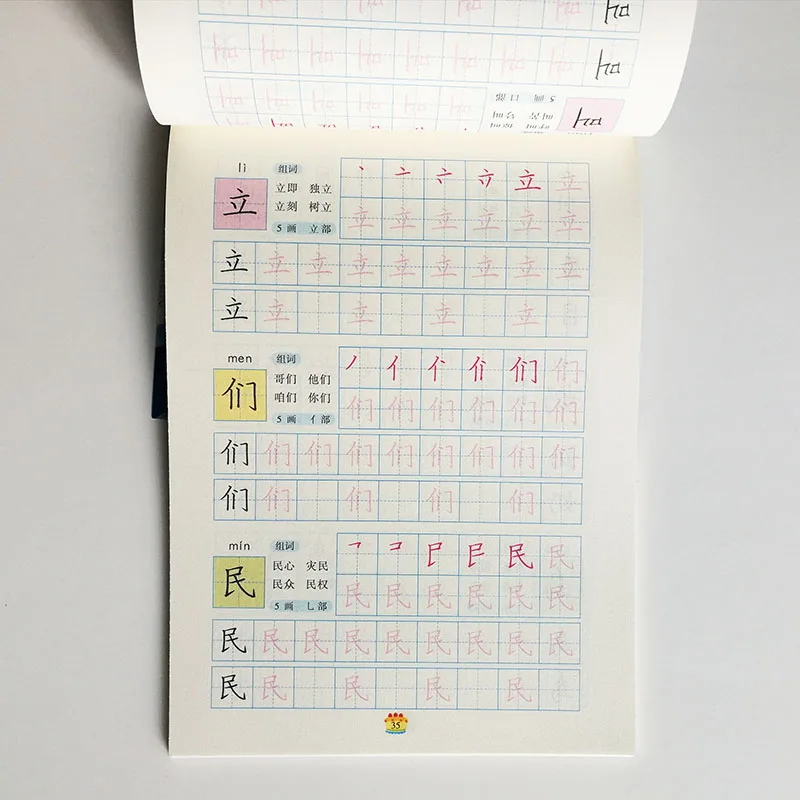 叫
叫
5画 口部
叫苦 号叫
叫
lì 组词
立 立即 独立
立刻 树立
5画 立部
丶 亠 立 立
立 立 立 立 立 立
立 立 立 立 立 立 立 立 立
立 立 立 立 立
men 组词
们 哥们 他们
咱们 你们
5画 亻部
丿 亻 们 们
们 们 们 们 们 们
们 们 们 们 们 们 们 们 们
们 们 们 们 们
mín 组词
民 民心 灾民
民众 民权
5画 乚部
民 民
民 民 民 民 民 民
民 民 民 民 民 民 民 民 民
民 民 民 民 民
35